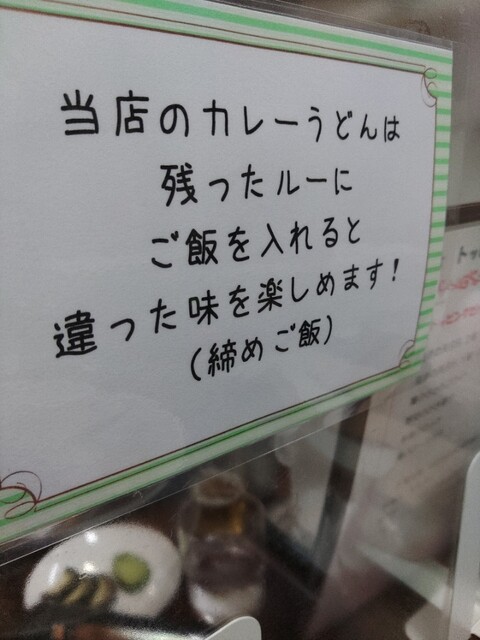 当店のカレーうどんは
残ったルーに
ご飯を入れると
違った味を楽しめます!
(締めご飯)